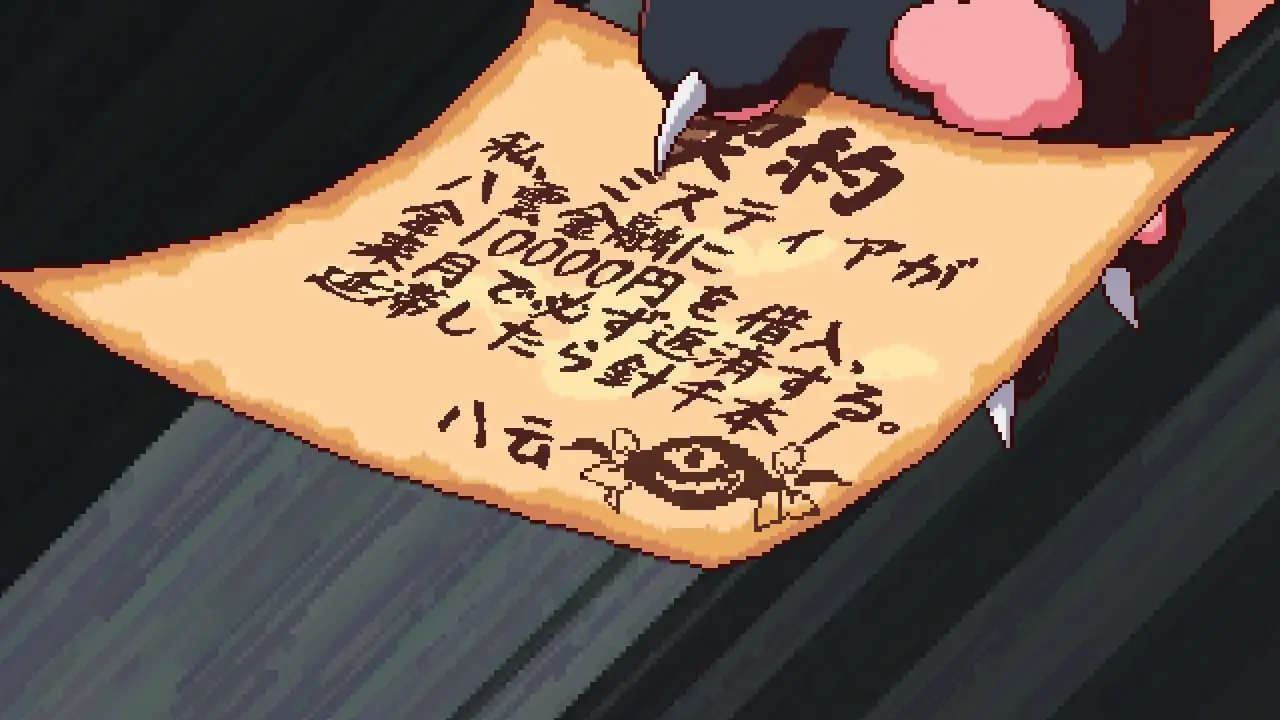 契約
私、ミスティアが
八雲金融に
金10000円を借入、
来月で必ず返済する。
延滞したら針千本!
八云